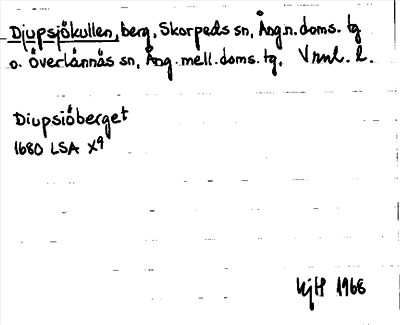 Djupsjökullen, berg, Skorpeds sn, Ång.n.doms.tg
o. Överlännäs sn, Ång.mell.doms.tg. Vrml. l.
Diupsiöberget
1680 LSA X9
HjH 1968